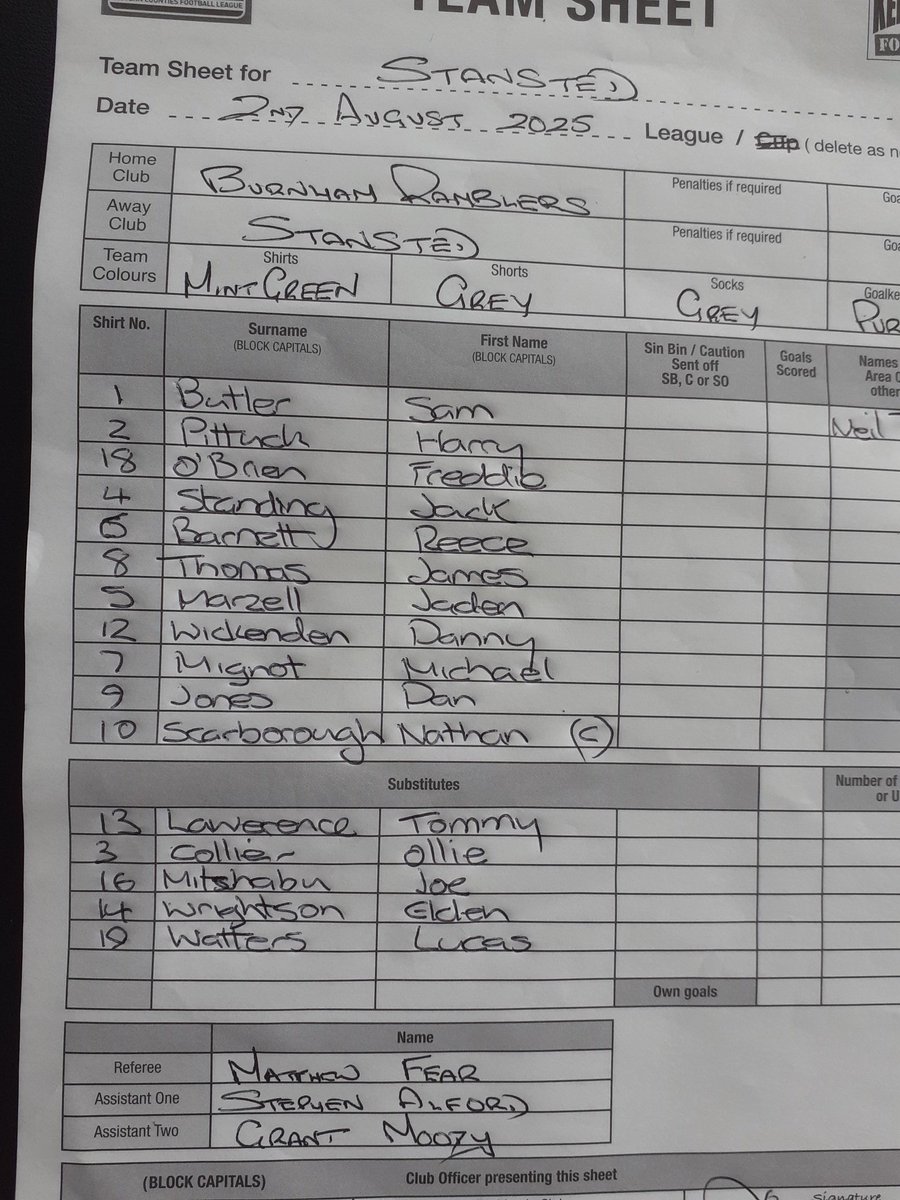 COUNTIES FOOTBALL LEAGUE
TEAM SHEET
FO
Team Sheet for STANSTED
Date 2ND AUGUST 2025 League / Cup ( delete as
Home Club BURNHAM RAMBLERS Penalties if required
Away Club STANSTED Penalties if required
Team Colours Shirts MINT GREEN Shorts GREY Socks GREY
Shirt No. Surname (BLOCK CAPITALS) First Name (BLOCK CAPITALS) Sin Bin / Caution Sent off SB, C or SO Goals Scored Names
1 Butler Sam Neil
2 Pittuck Harry
18 O'Brien Freddie
4 Standing Jack
6 Barnett Reece
8 Thomas James
5 Marzell Jaden
12 Wickenden Danny
7 Mignot Michael
9 Jones Dan
10 Scarborough Nathan (C)
Substitutes Number of
13 Lawerence Tommy
3 Collier Ollie
16 Mitshabu Joe
14 Wrightson Elden
19 Watters Lucas
Own goals
Name
Referee MATTHEW FEAR
Assistant One STEPHEN ALFORD
Assistant Two GRANT MOOZY
(BLOCK CAPITALS) Club Officer presenting this sheet
signature